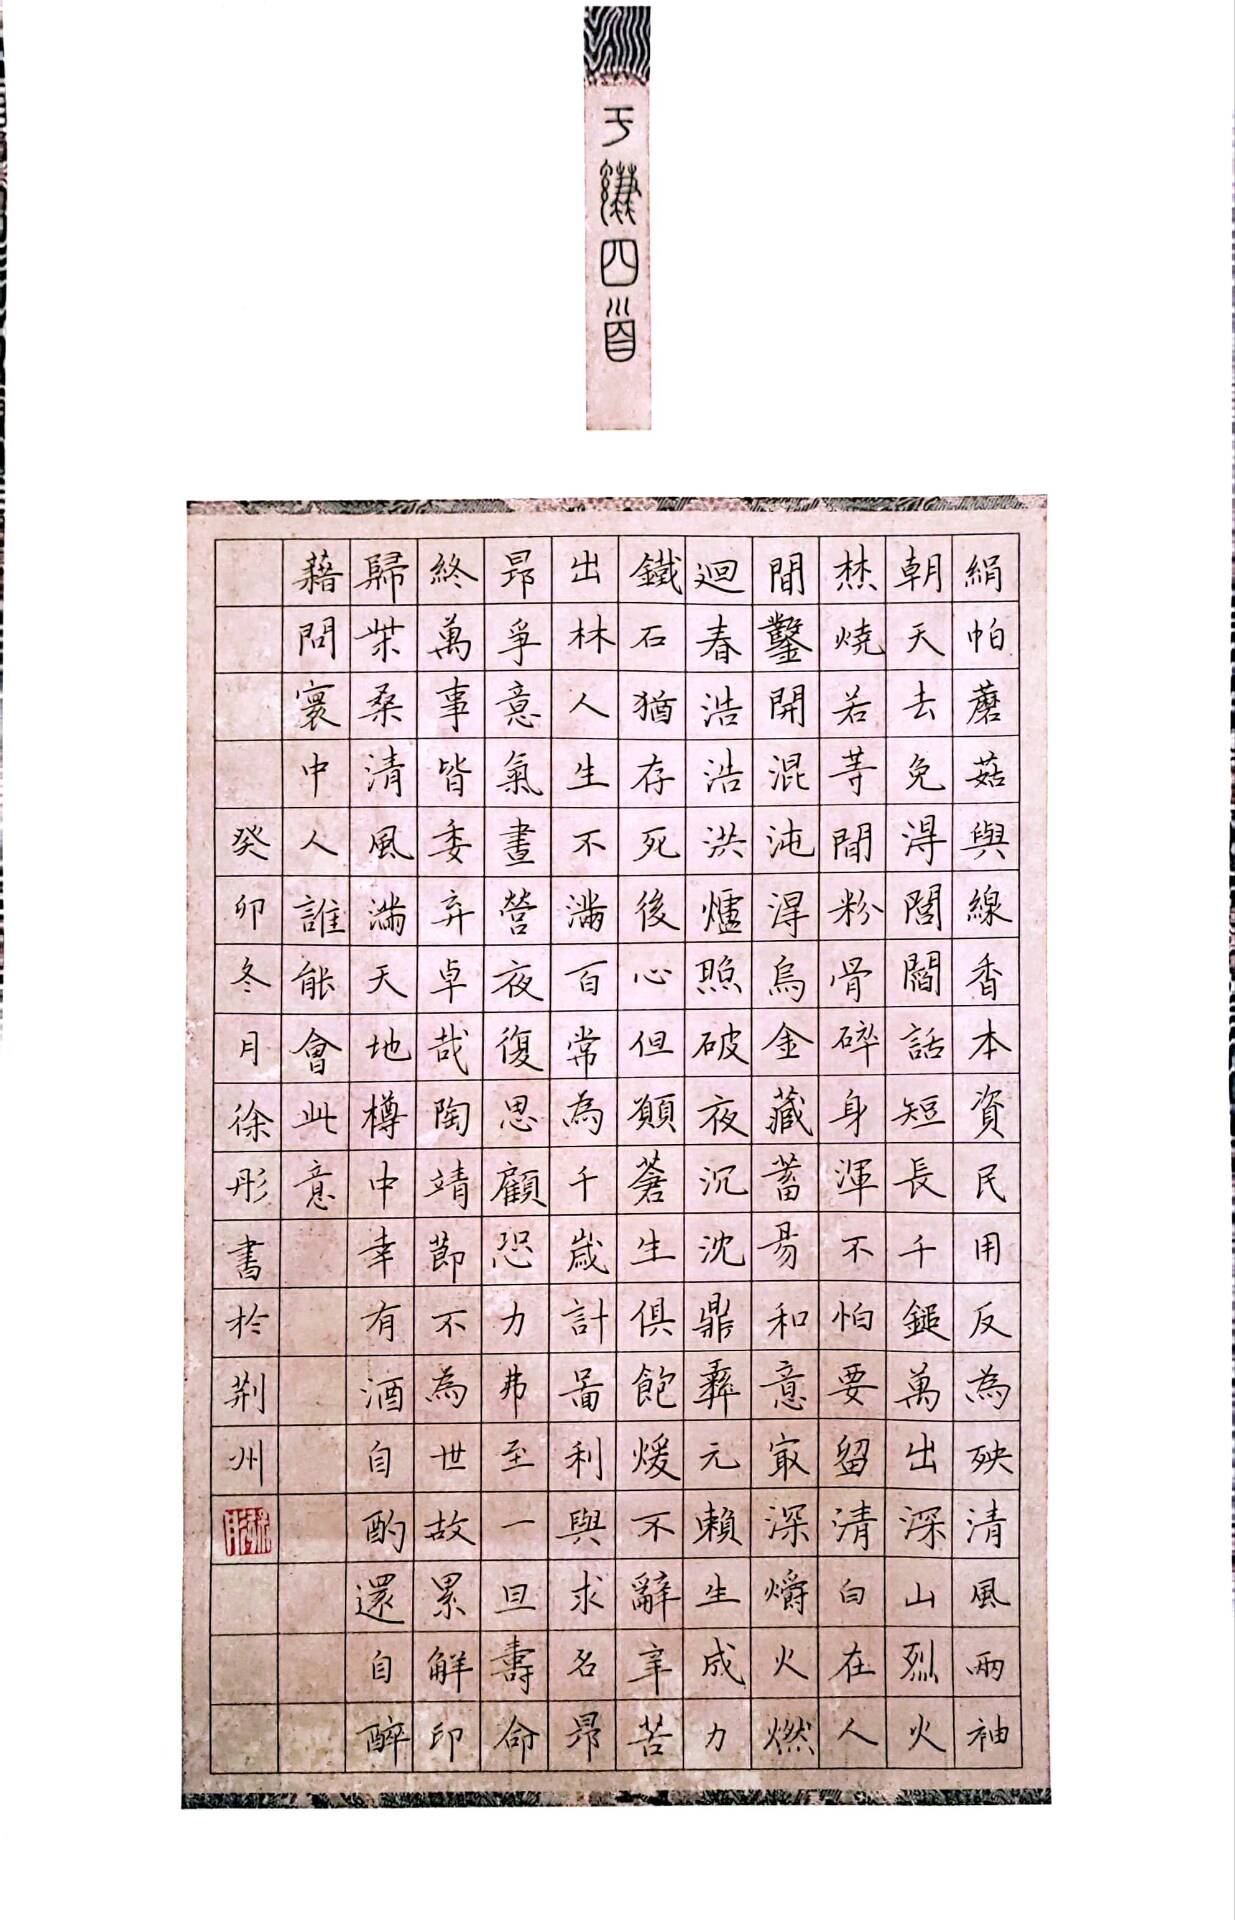 于謙四首
絹帕蘑菇與線香本資民用反為殃清風兩袖
朝天去免得閭閻話短長千鎚萬出深山烈火
焚燒若等間粉骨碎身渾不怕要留清白在人
間鑿開混沌得烏金藏蓄昜和意冣深爝火燃
迴春浩浩洪爐照破夜沉沈鼎彝元賴生成力
鐵石猶存死後心但願蒼生俱飽煖不辭辛苦
出林人生不滿百常為千歲計圖利與求名昂
昂爭意氣晝營夜復思顧恐力弗至一旦壽命
終萬事皆委弃卓哉陶靖節不為世故累解印
歸柴桑清風滿天地樽中幸有酒自酌還自醉
藉問寰中人誰能會此意
癸卯冬月徐彤書於荊州